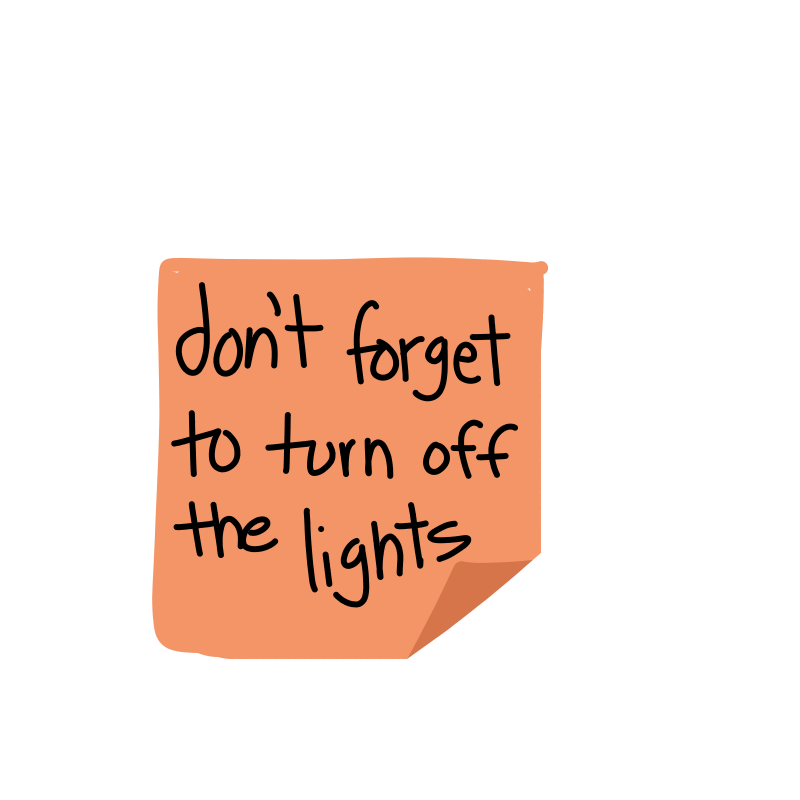 don't forget
to turn off
the lights